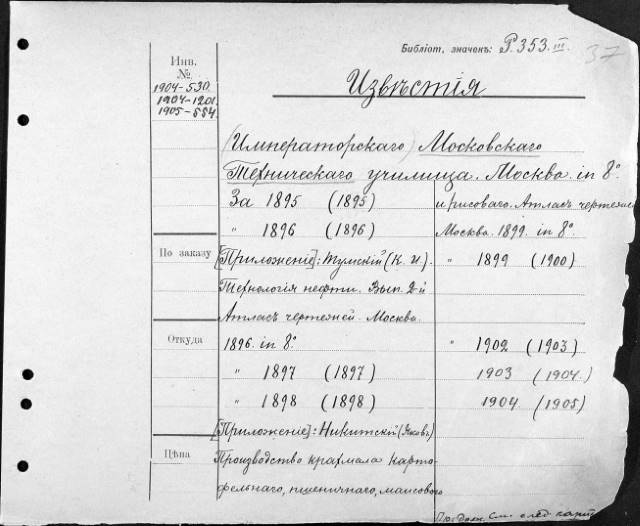 Библіот. значекъ: P.353.III.
37
Инв.
№
1904-530
1904-1201
1905-554
Извѣстія
(Императорскаго) Московскаго
Техническаго училища. Москва. in 8°.
За 1895 (1895)
" 1896 (1896)
[Приложеніе]: Тумскій (К. И).
Технологія нефти. Вып. 2-й
Атласъ чертежей. Москва.
1896. in 8°.
" 1897 (1897)
" 1898 (1898)
[Приложеніе]: Никитскій (Яковъ)
Производство крахмала карто-
фельнаго, пшеничнаго, маисоваго
и рисоваго. Атласъ чертежей
Москва. 1899. in 8°.
" 1899 (1900)
" 1902 (1903)
1903 (1904)
1904. (1905)
По заказу
Откуда
Цѣна
См. след. карт